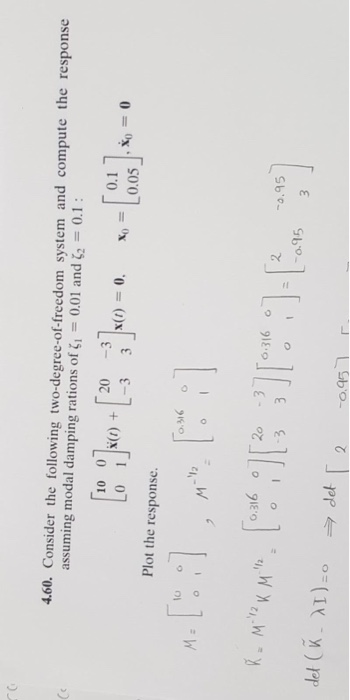 4.60. Consider the following two-degree-of-freedom system and compute the response
assuming modal damping rations of ζ₁ = 0.01 and ζ₂ = 0.1:
[10 0; 0 1] ẍ(t) + [20 −3; −3 3] x(t) = 0, x₀ = [0.1; 0.05], ẋ₀ = 0
Plot the response.
M = [10 0; 0 1] , M^-1/2 = [0.316 0; 0 1]
K̃ = M^-1/2 K M^-1/2 = [0.316 0; 0 1] [20 -3; -3 3] [0.316 0; 0 1] = [2 -0.95; -0.95 3]
det (K̃ - λI) = 0 ⇒ det [2 -0.95]